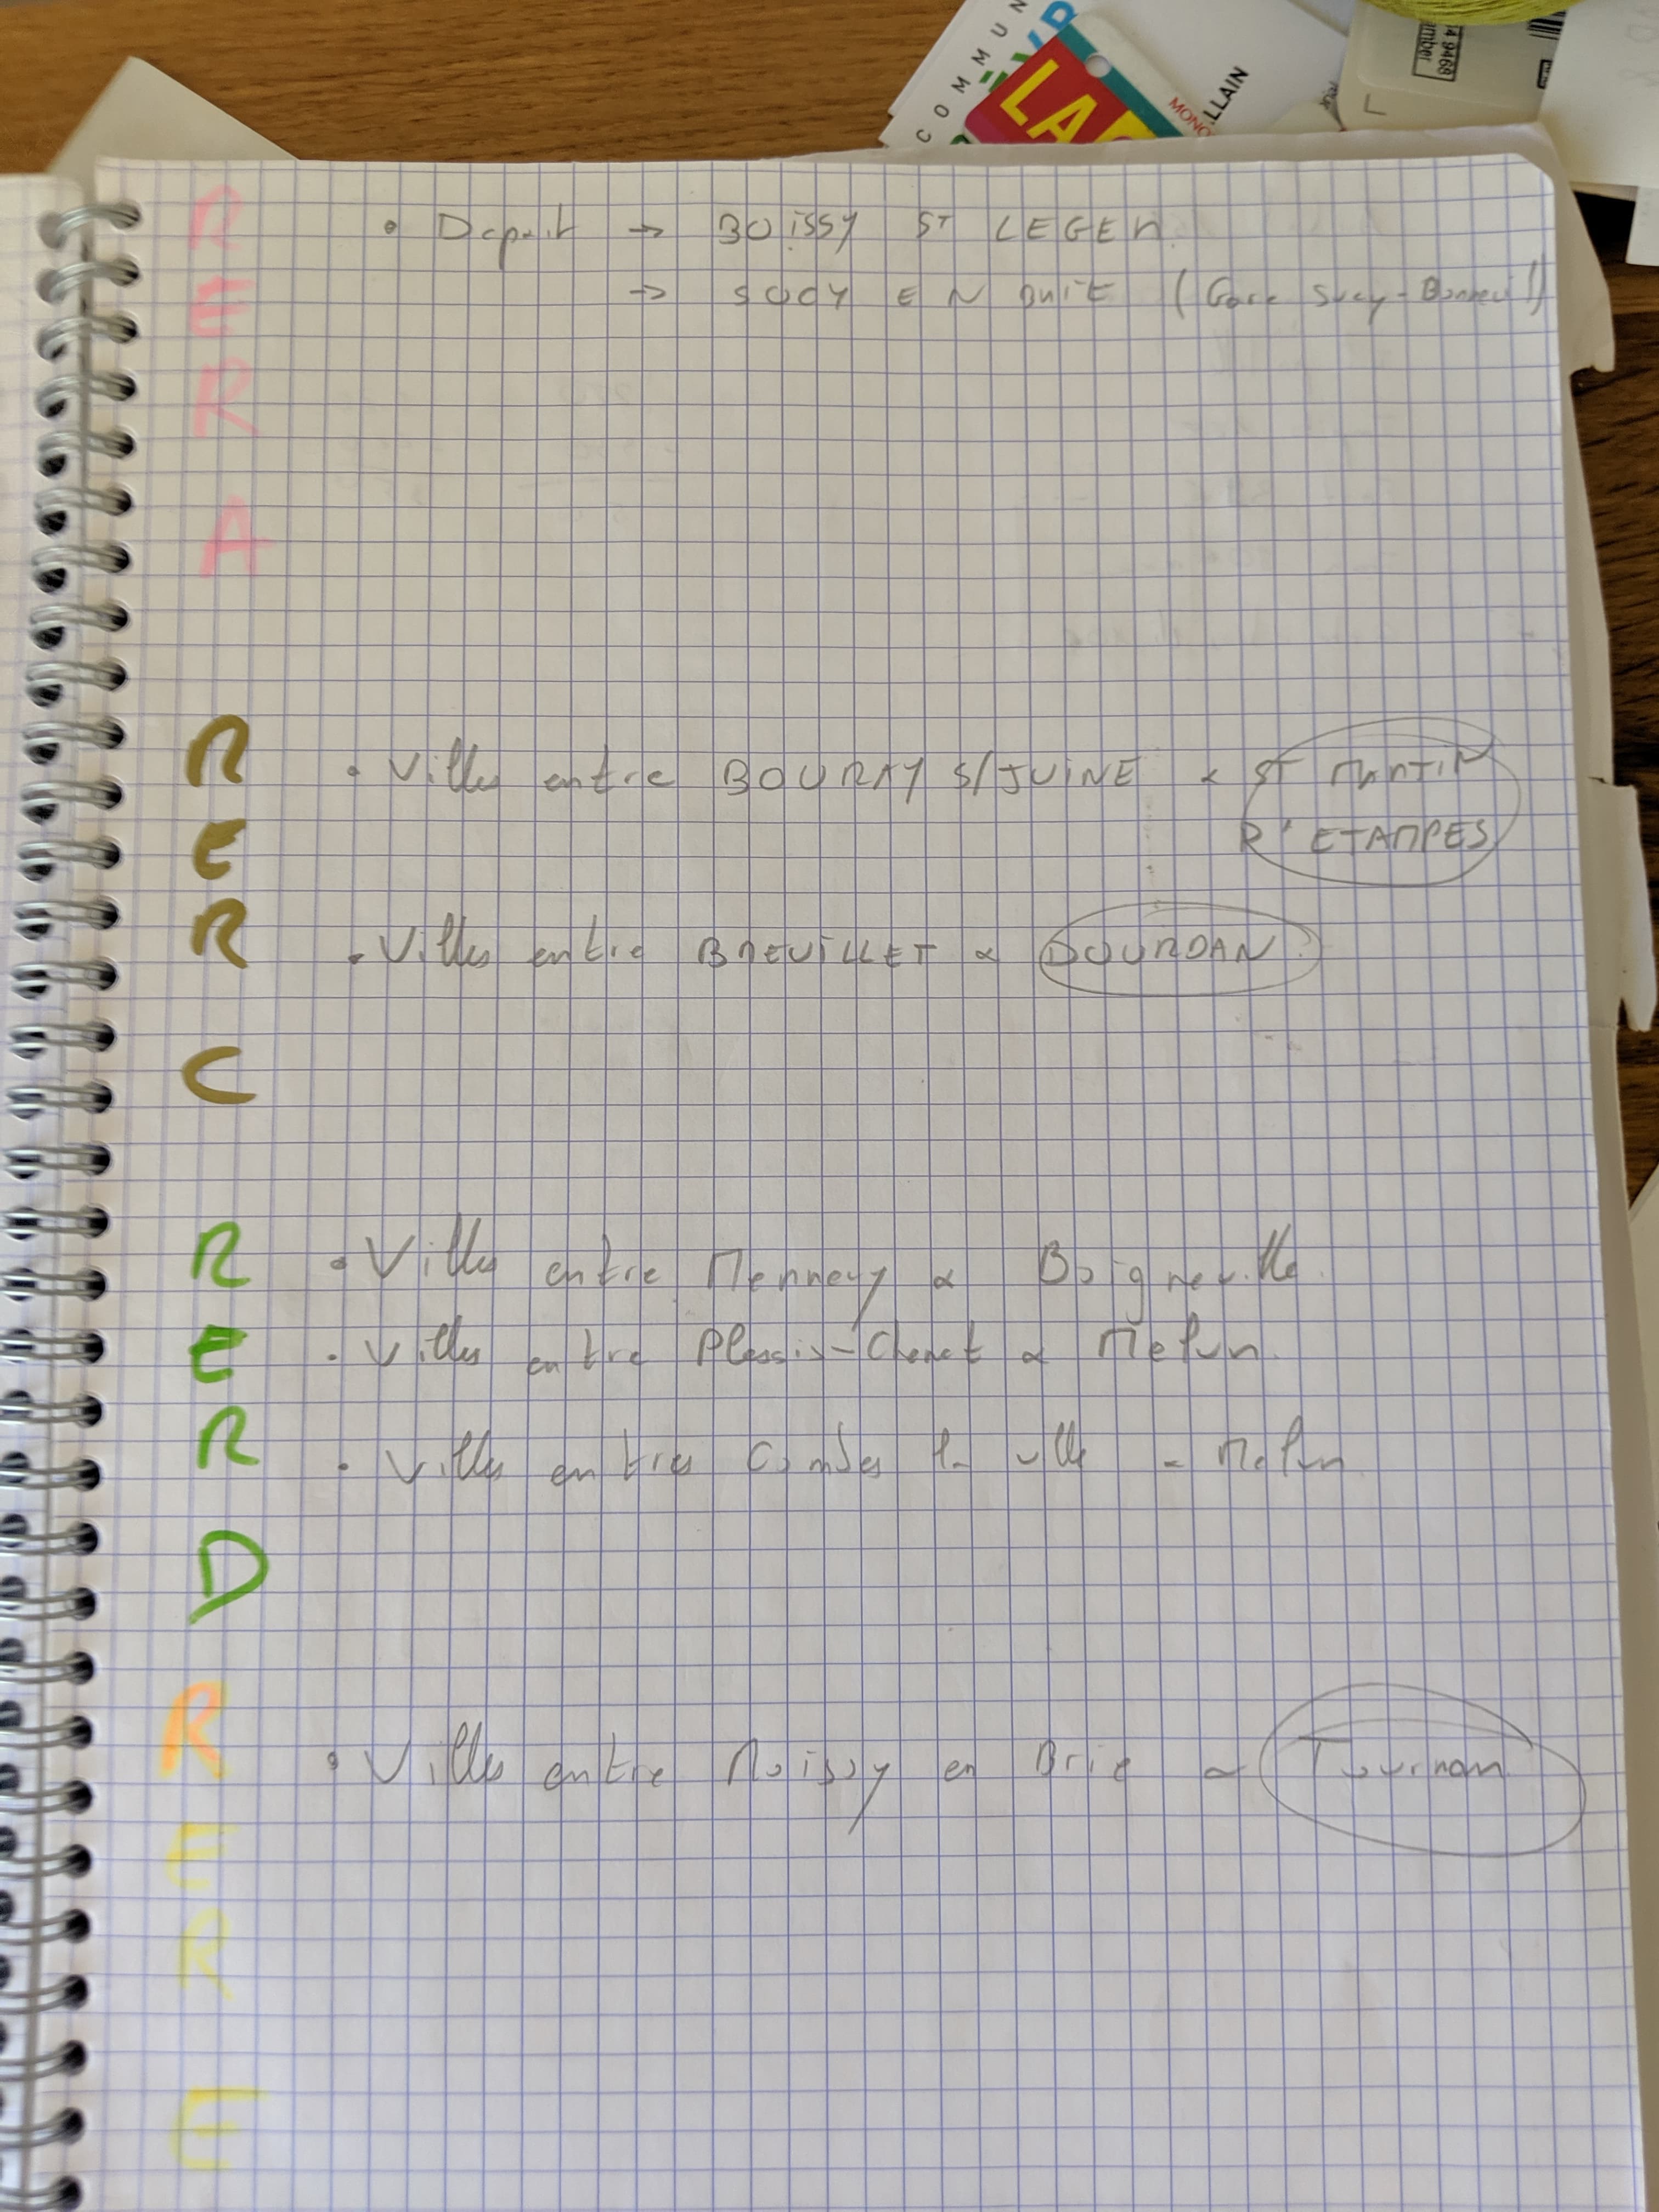 COMMUN
LA
MONO
LLAIN
9468
mber
RER A
• Depart → BOISSY ST LEGER
→ SUCY EN BRIE (Gare Sucy-Bonneuil)
RER C
• Villes entre BOURAY S/JUINE à ST MARTIN
D'ETAMPES
• Villes entre BREUILLET à DOURDAN
RER D
• Villes entre Mennecy à Boigneville
• Villes entre Plessis-Chenet à Melun
• Villes entres Combs la ville - Melun
RER E
• Villes entre Roissy en Brie à Tournan